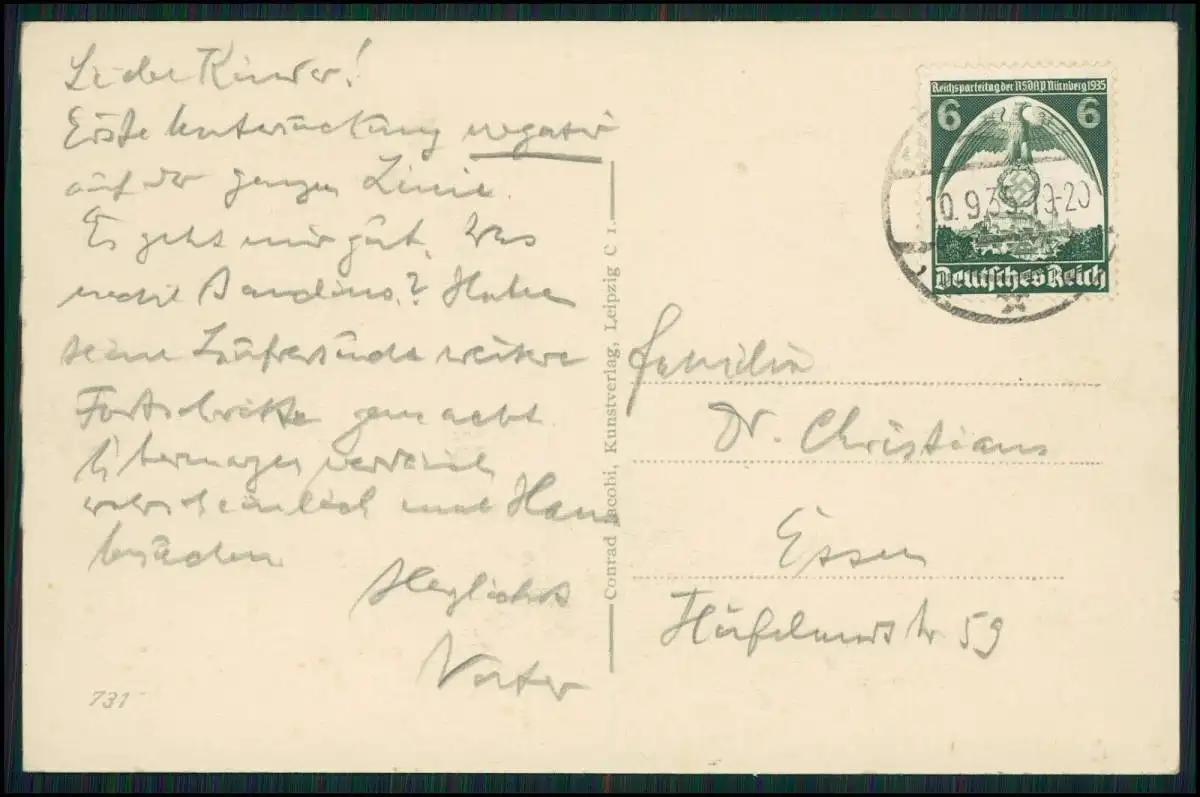 Liebe Kinder!
Erste Untersuchung negativ
auf der ganzen Linie.
Es geht mir gut. Was
macht ? Haben
seine weitere
Fortschritte gemacht
Übermorgen werde ich
wahrscheinlich mal Hans
besuchen
Herzlichst
Vater
731
Conrad Jacobi, Kunstverlag, Leipzig C 1.
Reichsparteitag der NSDAP Nürnberg 1935
6 6
10.9.35 19-20
Deutsches Reich
Familie
Dr. Christians
Essen
Hufelandstr 59